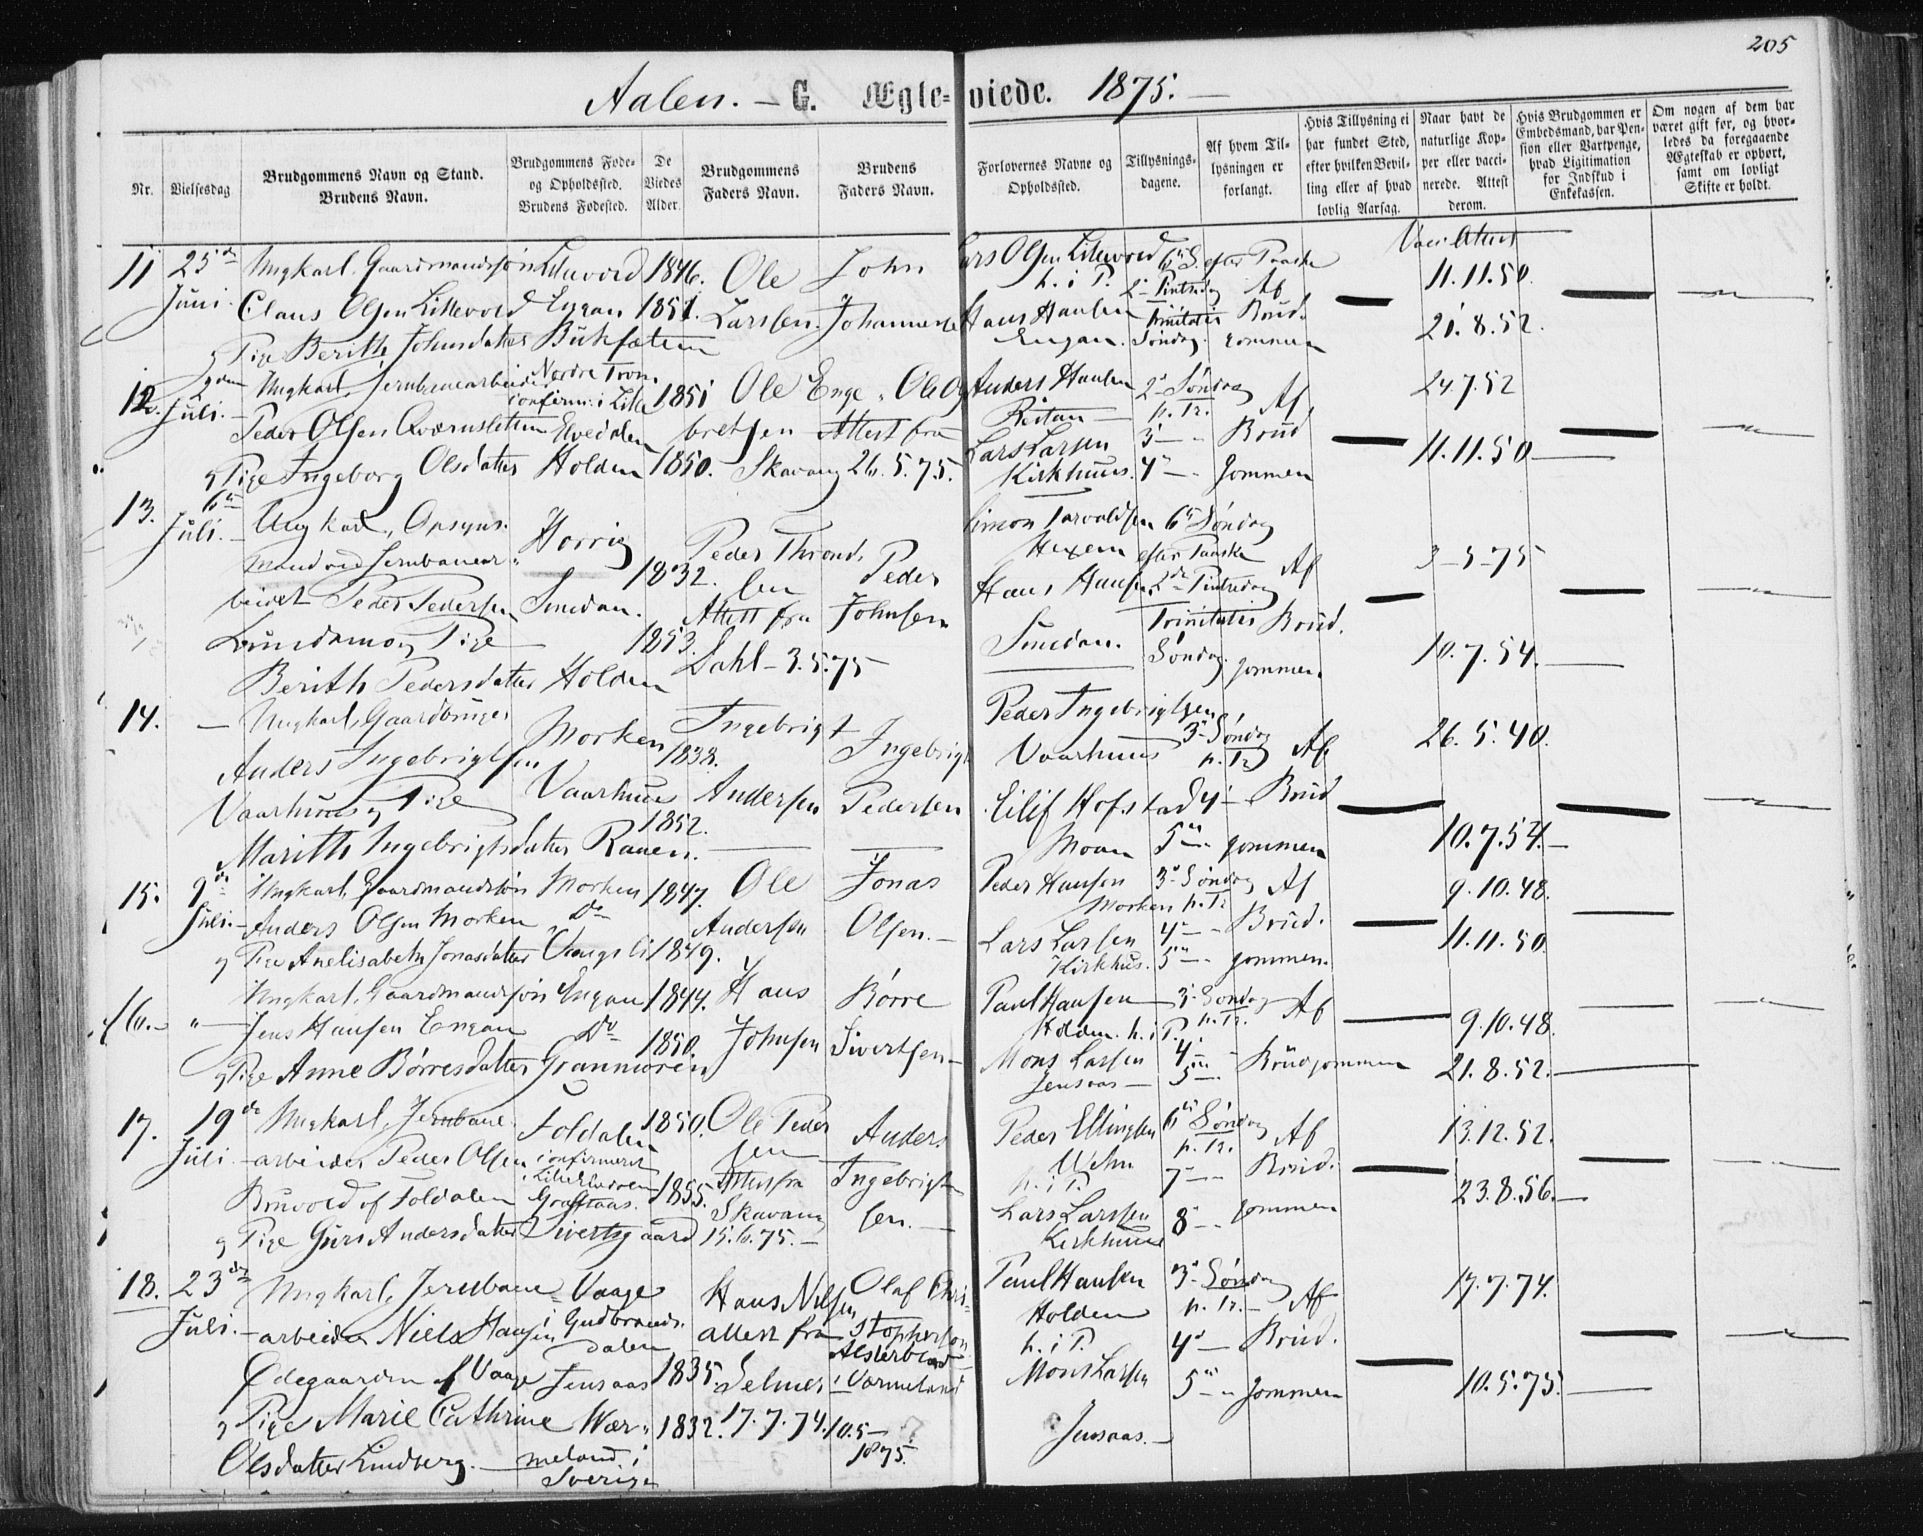 205
Aalen. – G. Ægteviede. 1875. –
Nr.
Vielsesdag
Brudgommens Navn og Stand.
Brudens Navn.
Brudgommens Føde-
og Opholdssted.
Brudens Fødested.
De
Viedes
Alder.
Brudgommens
Faders Navn.
Brudens
Faders Navn.
Forlovernes Navne og
Opholdssted.
Tillysnings-
dagene.
Af hvem Til-
lysningen er
forlangt.
Hvis Tillysning ei
har fundet Sted,
efter hvilken Bevil-
ling eller af hvad
lovlig Aarsag.
Naar havt de
naturlige Kop-
per eller vacci-
nerede. Attest
derom.
Hvis Brudgommen er
Embedsmand, har Pen-
sion eller Vartpenge,
hvad Ligitimation
for Indskud i
Enkekassen.
Om nogen af dem har
været gift før, og hvor-
ledes da foregaaende
Ægteskab er ophørt,
samt om lovligt
Skifte er holdt.
11 25de Juni.
Ungkarl, Gaardmandssøn
Claus Olsen Littevold
og Pige Berith Johnsdatter
Littevold
Engan
1846.
1851.
Ole
Larssen.
John
Johannes
Lars Olsen Littevold
h. i P.
Hans Hansen
Engan.
6te S. efter Paaske
2den Pintsedag
Trinitatis
Søndag.
Af
Brud.
gommen
Vacc. Attest
11.11.50.
21.8.52.
12. 2den Juli. –
Ungkarl, Jernbanearbeider
Peder Olsen
og Pige Ingeborg Olsdatter
Nordre Tron.
confirm. i Lille
Elvedalen
Holden
1851
1850.
Ole Enge
bretsen – Attest fra
Skavang 26.5.75.
Anders Hansen
Reitan –
Lars Larsen
Kirkhuus.
2den Søndag
p. Tr.
3 – "
4 – "
Af
Brud
gommen
24.7.52
11.11.50 –
13. 6te Juli. –
Ungkarl, Opsyns-
mand ved Jernbanear-
beidet Peder Pedersen
Lundamo og Pige
Berith Pedersdatter
Horrig
Smedan.
Holden
1832.
1853.
Peder Thrond.
sen
Attest fra
Dahl – 3.5.75
Peder
Johnsen
Simon Tarvaldsen
Hexem
Hans Hansen
Smedan.
6te Søndag
efter Paaske
2den Pintsedag
Trinitatis
Søndag.
Af
Brud.
gommen
3–5–75
10.7.54. –
14. –
Ungkarl, Gaardbruger
Anders Ingebrigtsen
Vaarhuus og Pige
Marith Ingebrigtsdatter
Morken
Vaarhuus
Rauen.
1838.
1852.
Ingebrigt
Andersen
Ingebrigt
Pedersen
Peder Ingebrigtsen
Vaarhuus
Eilif Hofstad
Moan
3die Søndag
p. Tr
4 –
5 – "
Af
Brud
gommen
26.5.40.
10.7.54. –
15. 9de Juli. –
Ungkarl, Gaardmandssøn
Anders Olsen Morken
og Pige Anelisabeth Jonasdatter
Morken
Do
Vangsli
1847.
1849.
Ole
Andersen
Jonas
Olsen. –
Peder Hansen
Morken
Lars Larsen
Kirkhus.
3die Søndag
p. Tr
4 – "
5 – "
Af
Brud.
gommen.
9.10.48.
11.11.50.
16. – " –
Ungkarl, Gaardmandssøn
Jens Hansen Engan
og Pige Anne Børresdatter
Engan
Do
Grønmoren
1844.
1850.
Hans
Johnsen
Børre
Sivertsen –
Paul Hansen
Holden. h. i P.
Mons Larsen
Jensaas –
3die Søndag
p. Tr.
4 –
5 –
Af
Brudgommen
9.10.48.
21.8.52. –
17. 19de Juli. –
Ungkarl, Jernbane-
arbeider Peder Olsen
Bruvold af Foldalen
og Pige Guru Andersdatter
Foldalen
confirmeret
i Lille Elvedalen
Sivertsgaard
1850.
1855.
Ole Peder
sen
Attest fra
Skavang
15.6.75. –
Anders
Ingebrigt
sen. –
Peder Ellingsen
h. i P.
Lars Larssen
Kirkhuus
6te Søndag
p. Tr.
7 – "
8 – "
Af
Brud.
gommen
13.12.52.
23.8.56. –
18. 23de Juli. –
Ungkarl, Jernbane
arbeider Niels Hansen
Ødegaarden af Vaage
og Pige Marie Cathrine
Olsdatter Lindberg. –
Vaage
i Gudbrands.
dalen
Jensaas
Wær-
meland i
Sverige
1835.
1832.
Hans Nilsen
attest fra
Selmer
17.7.74.
Olaf Chri-
stophersen
i Värmeland
10.5 –
1875.
Paul Hansen
Holden
h. i P.
Mons Larsen
Jensaas. –
3die Søndag
p. Tr. –
4 –
5 – "
Af
Brud.
gommen
17.7.74.
10.5.75. –